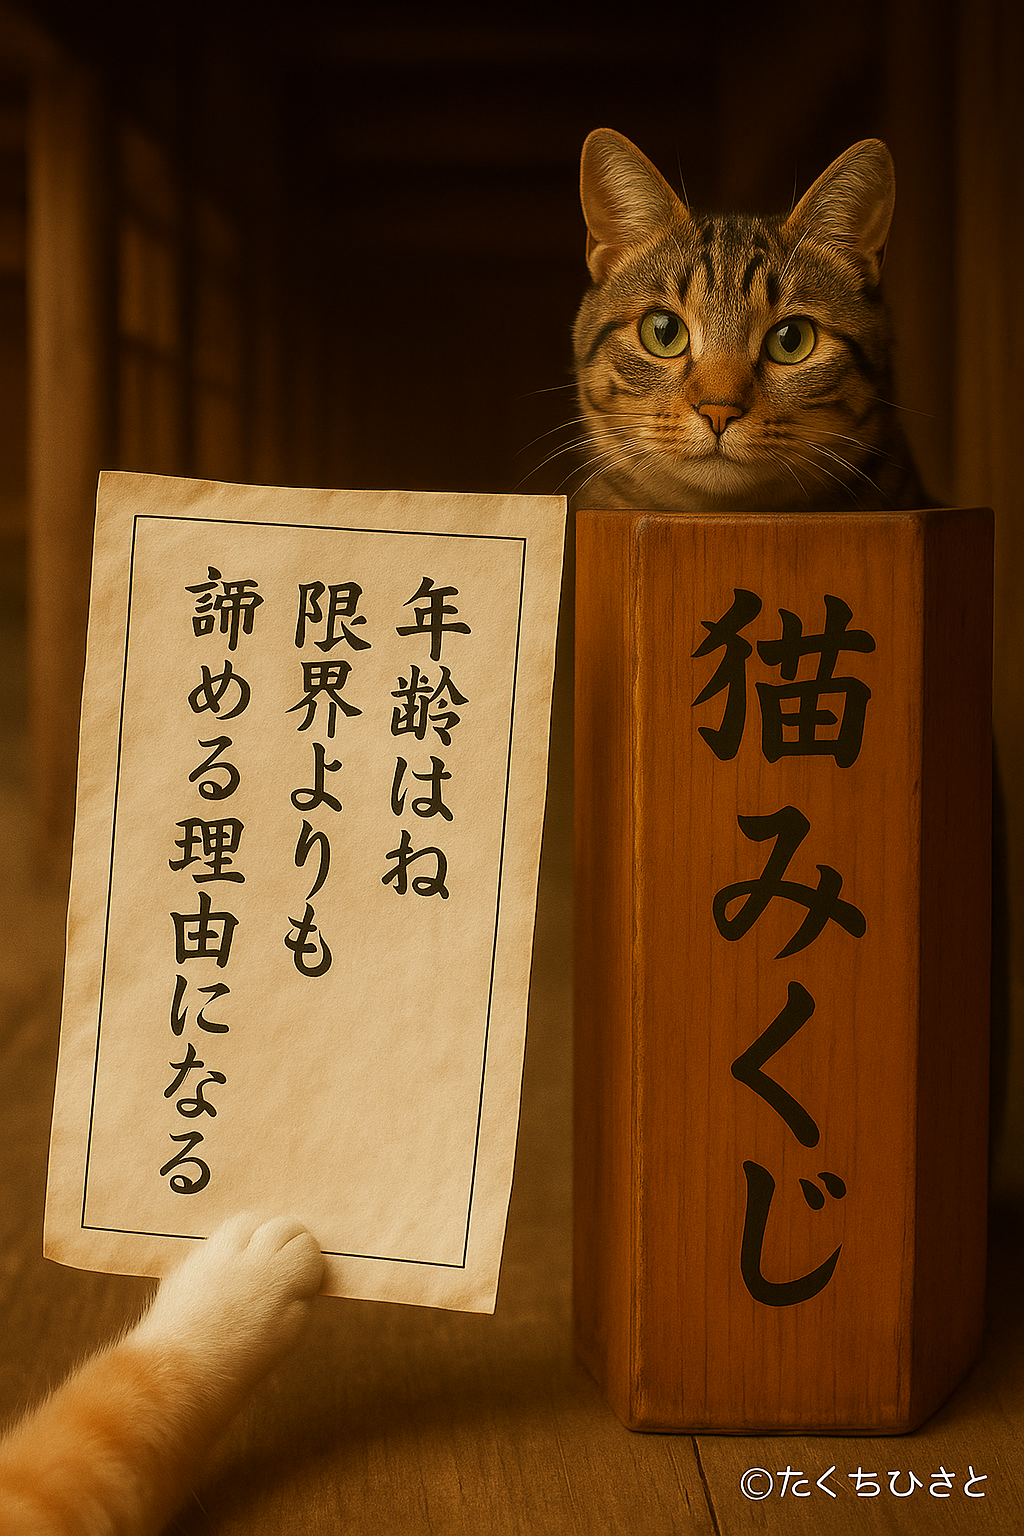 年齢はね
限界よりも
諦める理由になる
猫みくじ
©たくちひさと